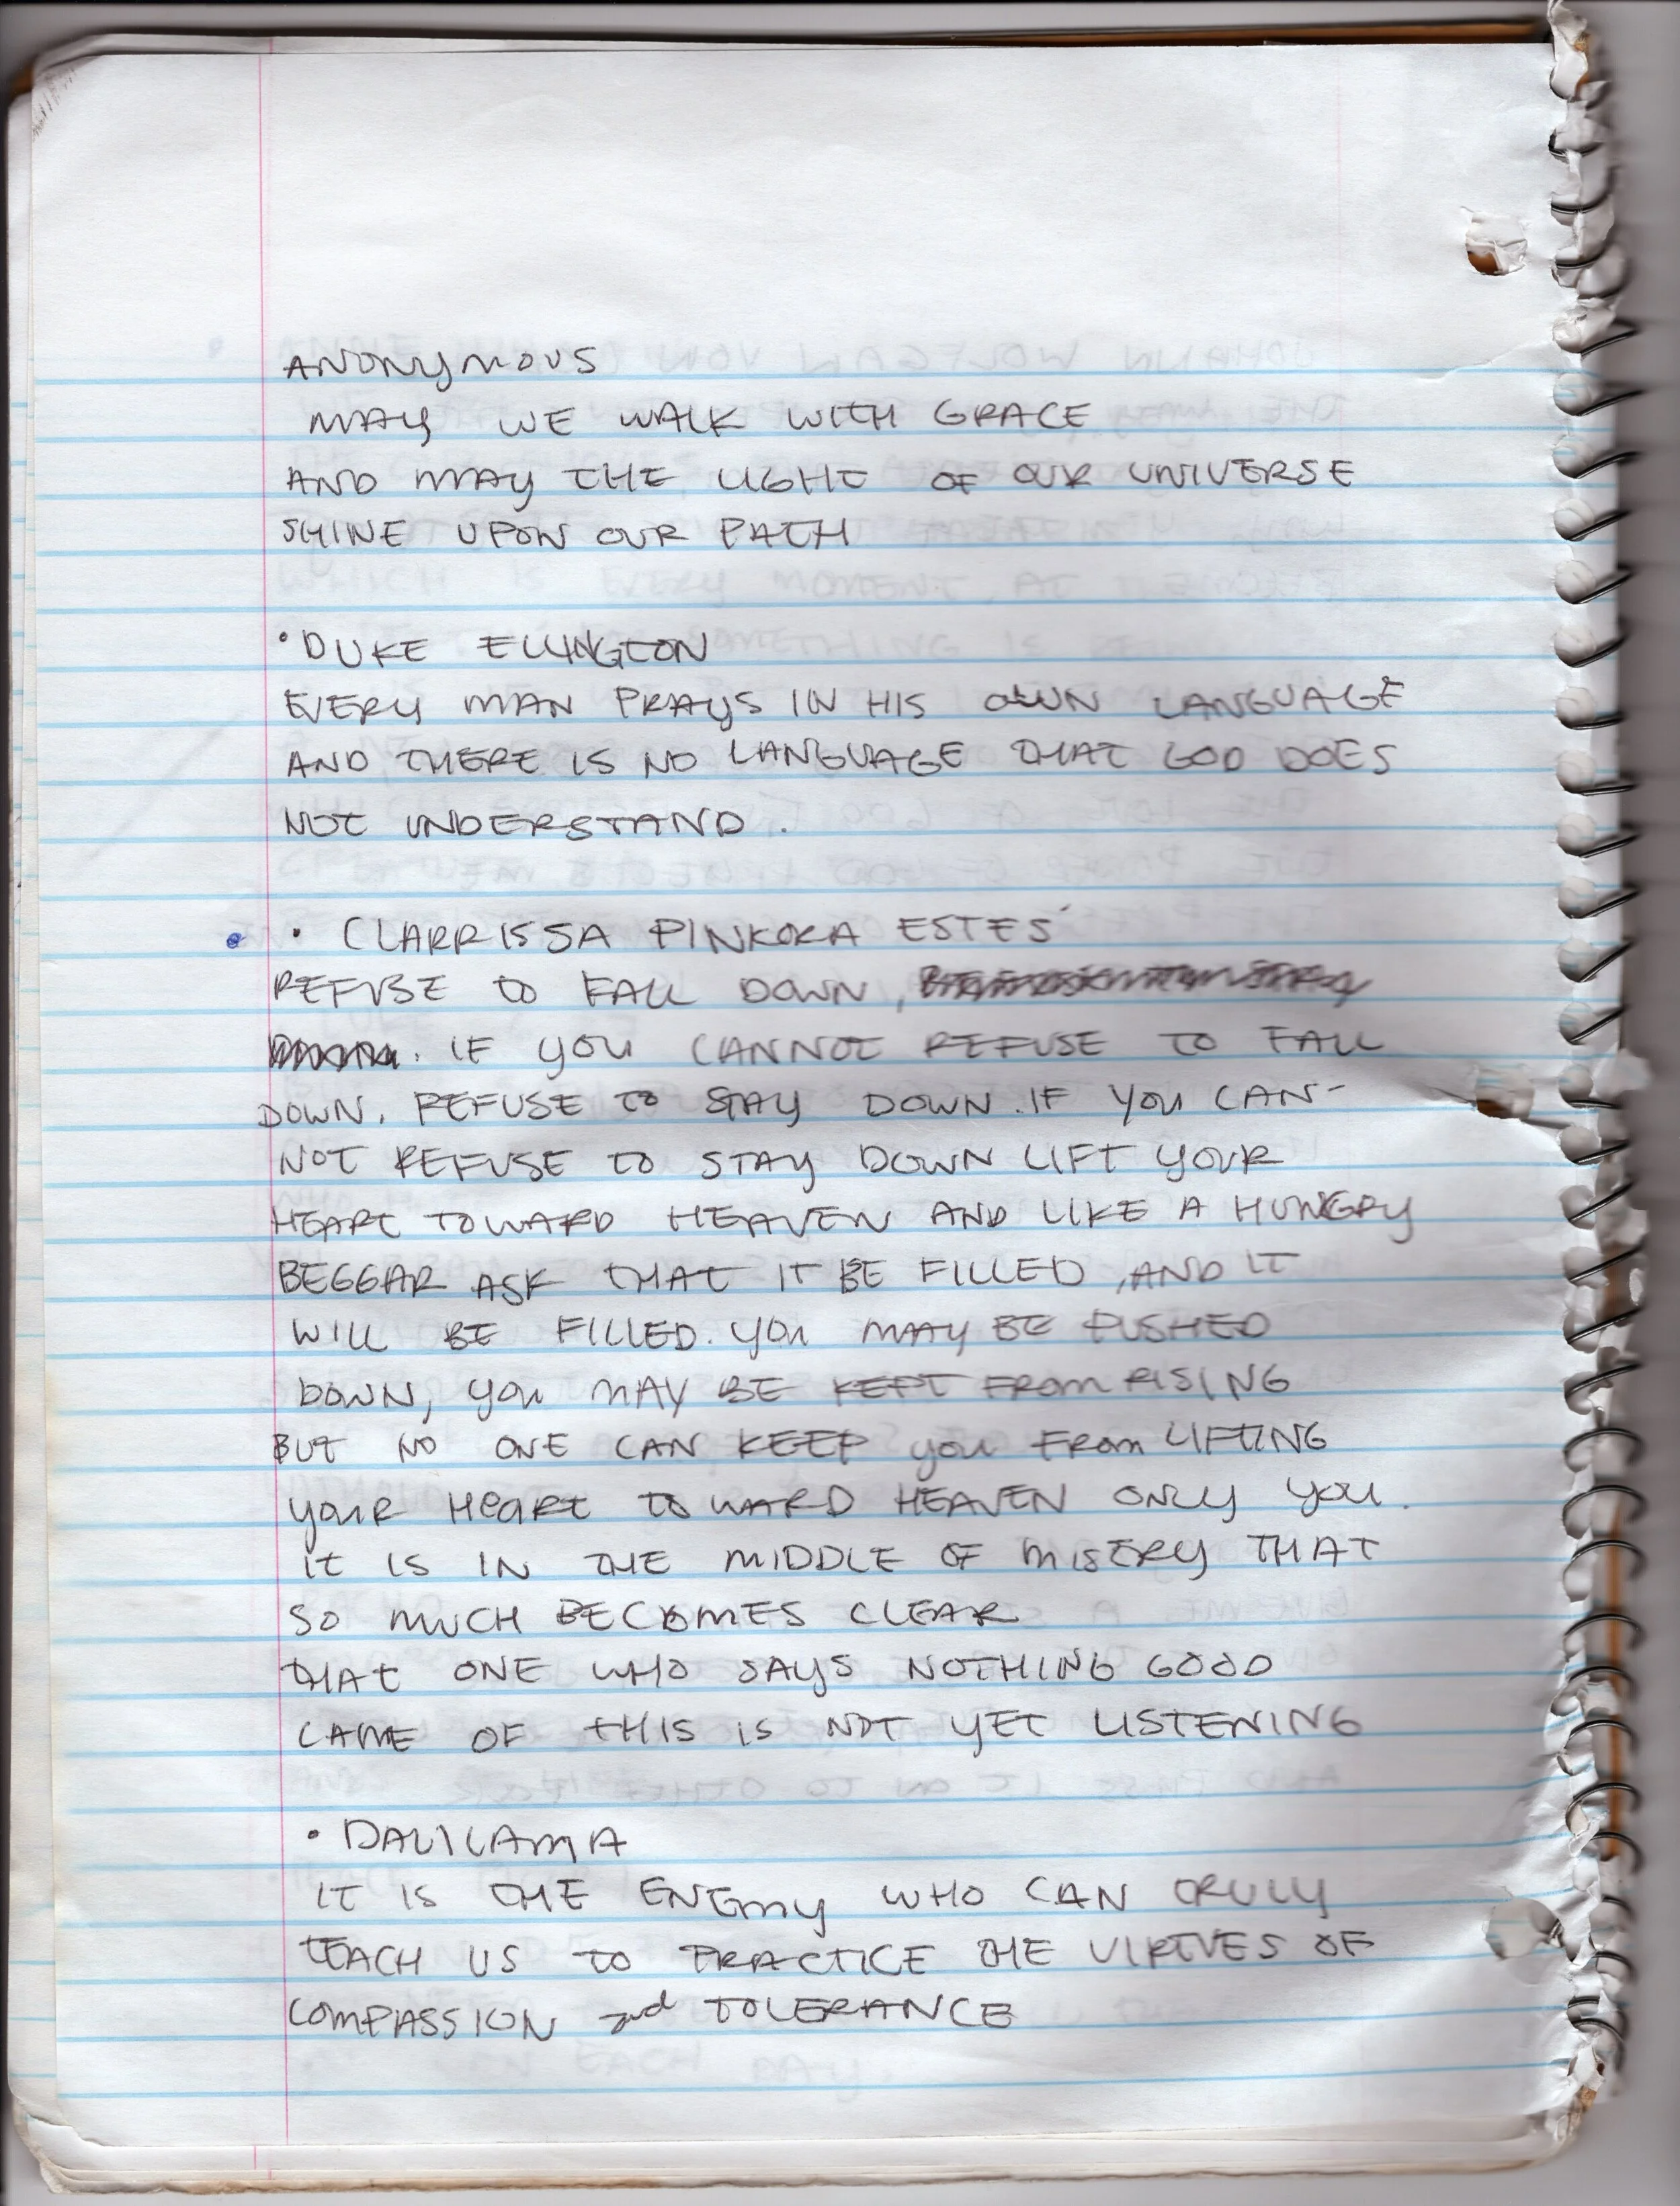 ANONYMOUS
MAY WE WALK WITH GRACE
AND MAY THE LIGHT OF OUR UNIVERSE
SHINE UPON OUR PATH
• DUKE ELLINGTON
EVERY MAN PRAYS IN HIS OWN LANGUAGE
AND THERE IS NO LANGUAGE THAT GOD DOES
NOT UNDERSTAND.
• CLARRISSA PINKOKA ESTES´
REFUSE TO FALL DOWN,
. IF YOU CANNOT REFUSE TO FALL
DOWN. REFUSE TO STAY DOWN. IF YOU CAN-
NOT REFUSE TO STAY DOWN LIFT YOUR
HEART TOWARD HEAVEN AND LIKE A HUNGRY
BEGGAR ASK THAT IT BE FILLED, AND IT
WILL BE FILLED. YOU MAY BE PUSHED
DOWN, YOU MAY BE KEPT FROM RISING
BUT NO ONE CAN KEEP YOU FROM LIFTING
YOUR HEART TOWARD HEAVEN ONLY YOU.
IT IS IN THE MIDDLE OF MISERY THAT
SO MUCH BECOMES CLEAR
THAT ONE WHO SAYS NOTHING GOOD
CAME OF THIS IS NOT YET LISTENING
• DALILAMA
IT IS THE ENEMY WHO CAN TRULY
TEACH US TO PRACTICE THE VIRTUES OF
COMPASSION and TOLERANCE